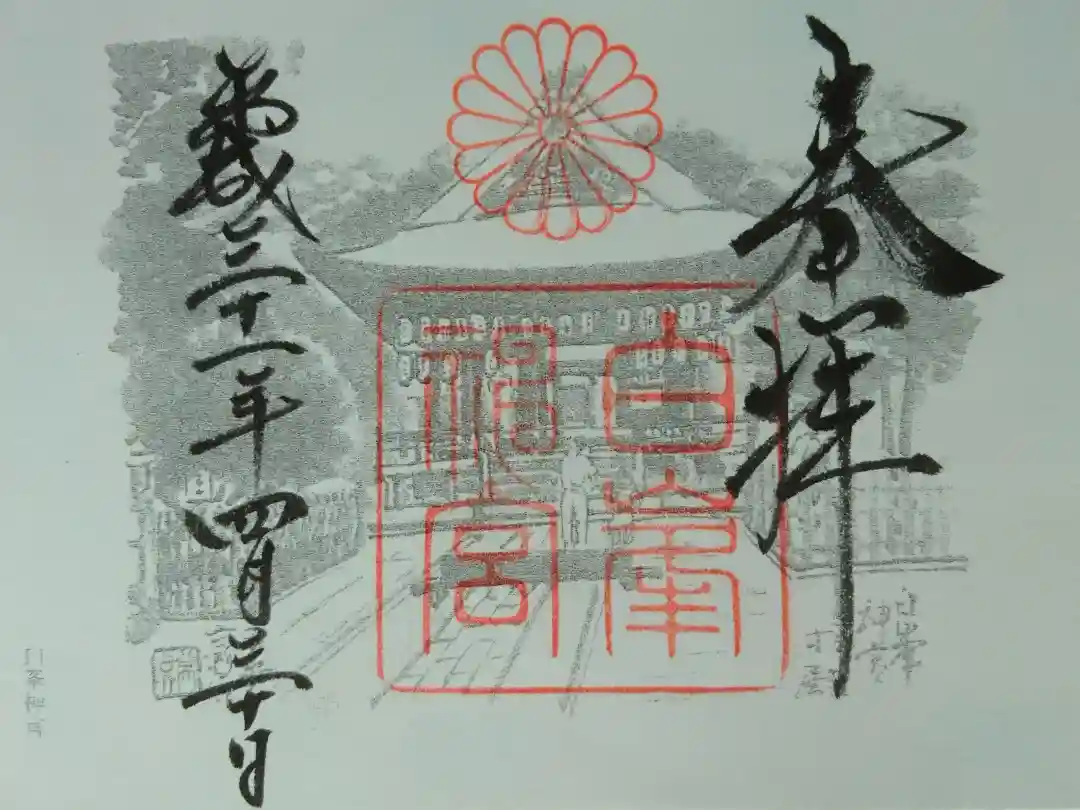 奉拝
白峯
神宮
平成三十一年四月三十日
白峯
神宮